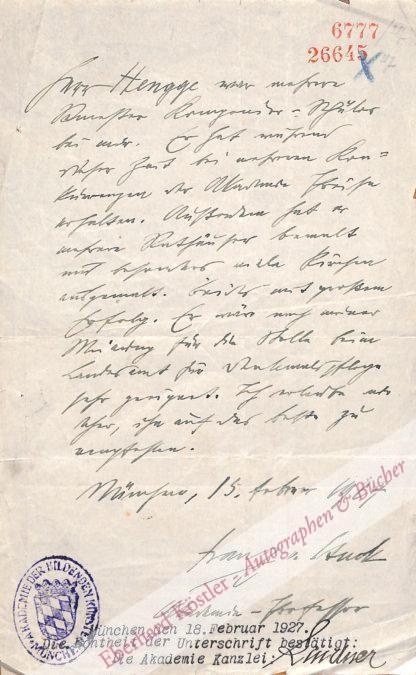 6777
26645
Herr Hengge war mehrere
Semester Komponier-Schüler
bei mir. Er hat während
dieser Zeit bei mehreren Kon-
kurrenzen der Akademie Preise
erhalten. Außerdem hat er
mehrere Rathäuser bemalt
und besonders viele Kirchen
ausgemalt. Beides mit großem
Erfolg. Er wäre nach meiner
Meinung für die Stelle beim
Landesamt für Denkmalspflege
sehr geeignet. Ich erlaube mir
daher, ihn auf das beste zu
empfehlen.
München, 15. Februar 1927
Franz v. Stuck
Akademie-Professor
Eberhard Köstler - Autographen & Bücher
AKADEMIE DER BILDENDEN KÜNSTE MÜNCHEN
München, den 18. Februar 1927.
Die Echtheit der Unterschrift bestätigt:
Die Akademie Kanzlei: Lindner